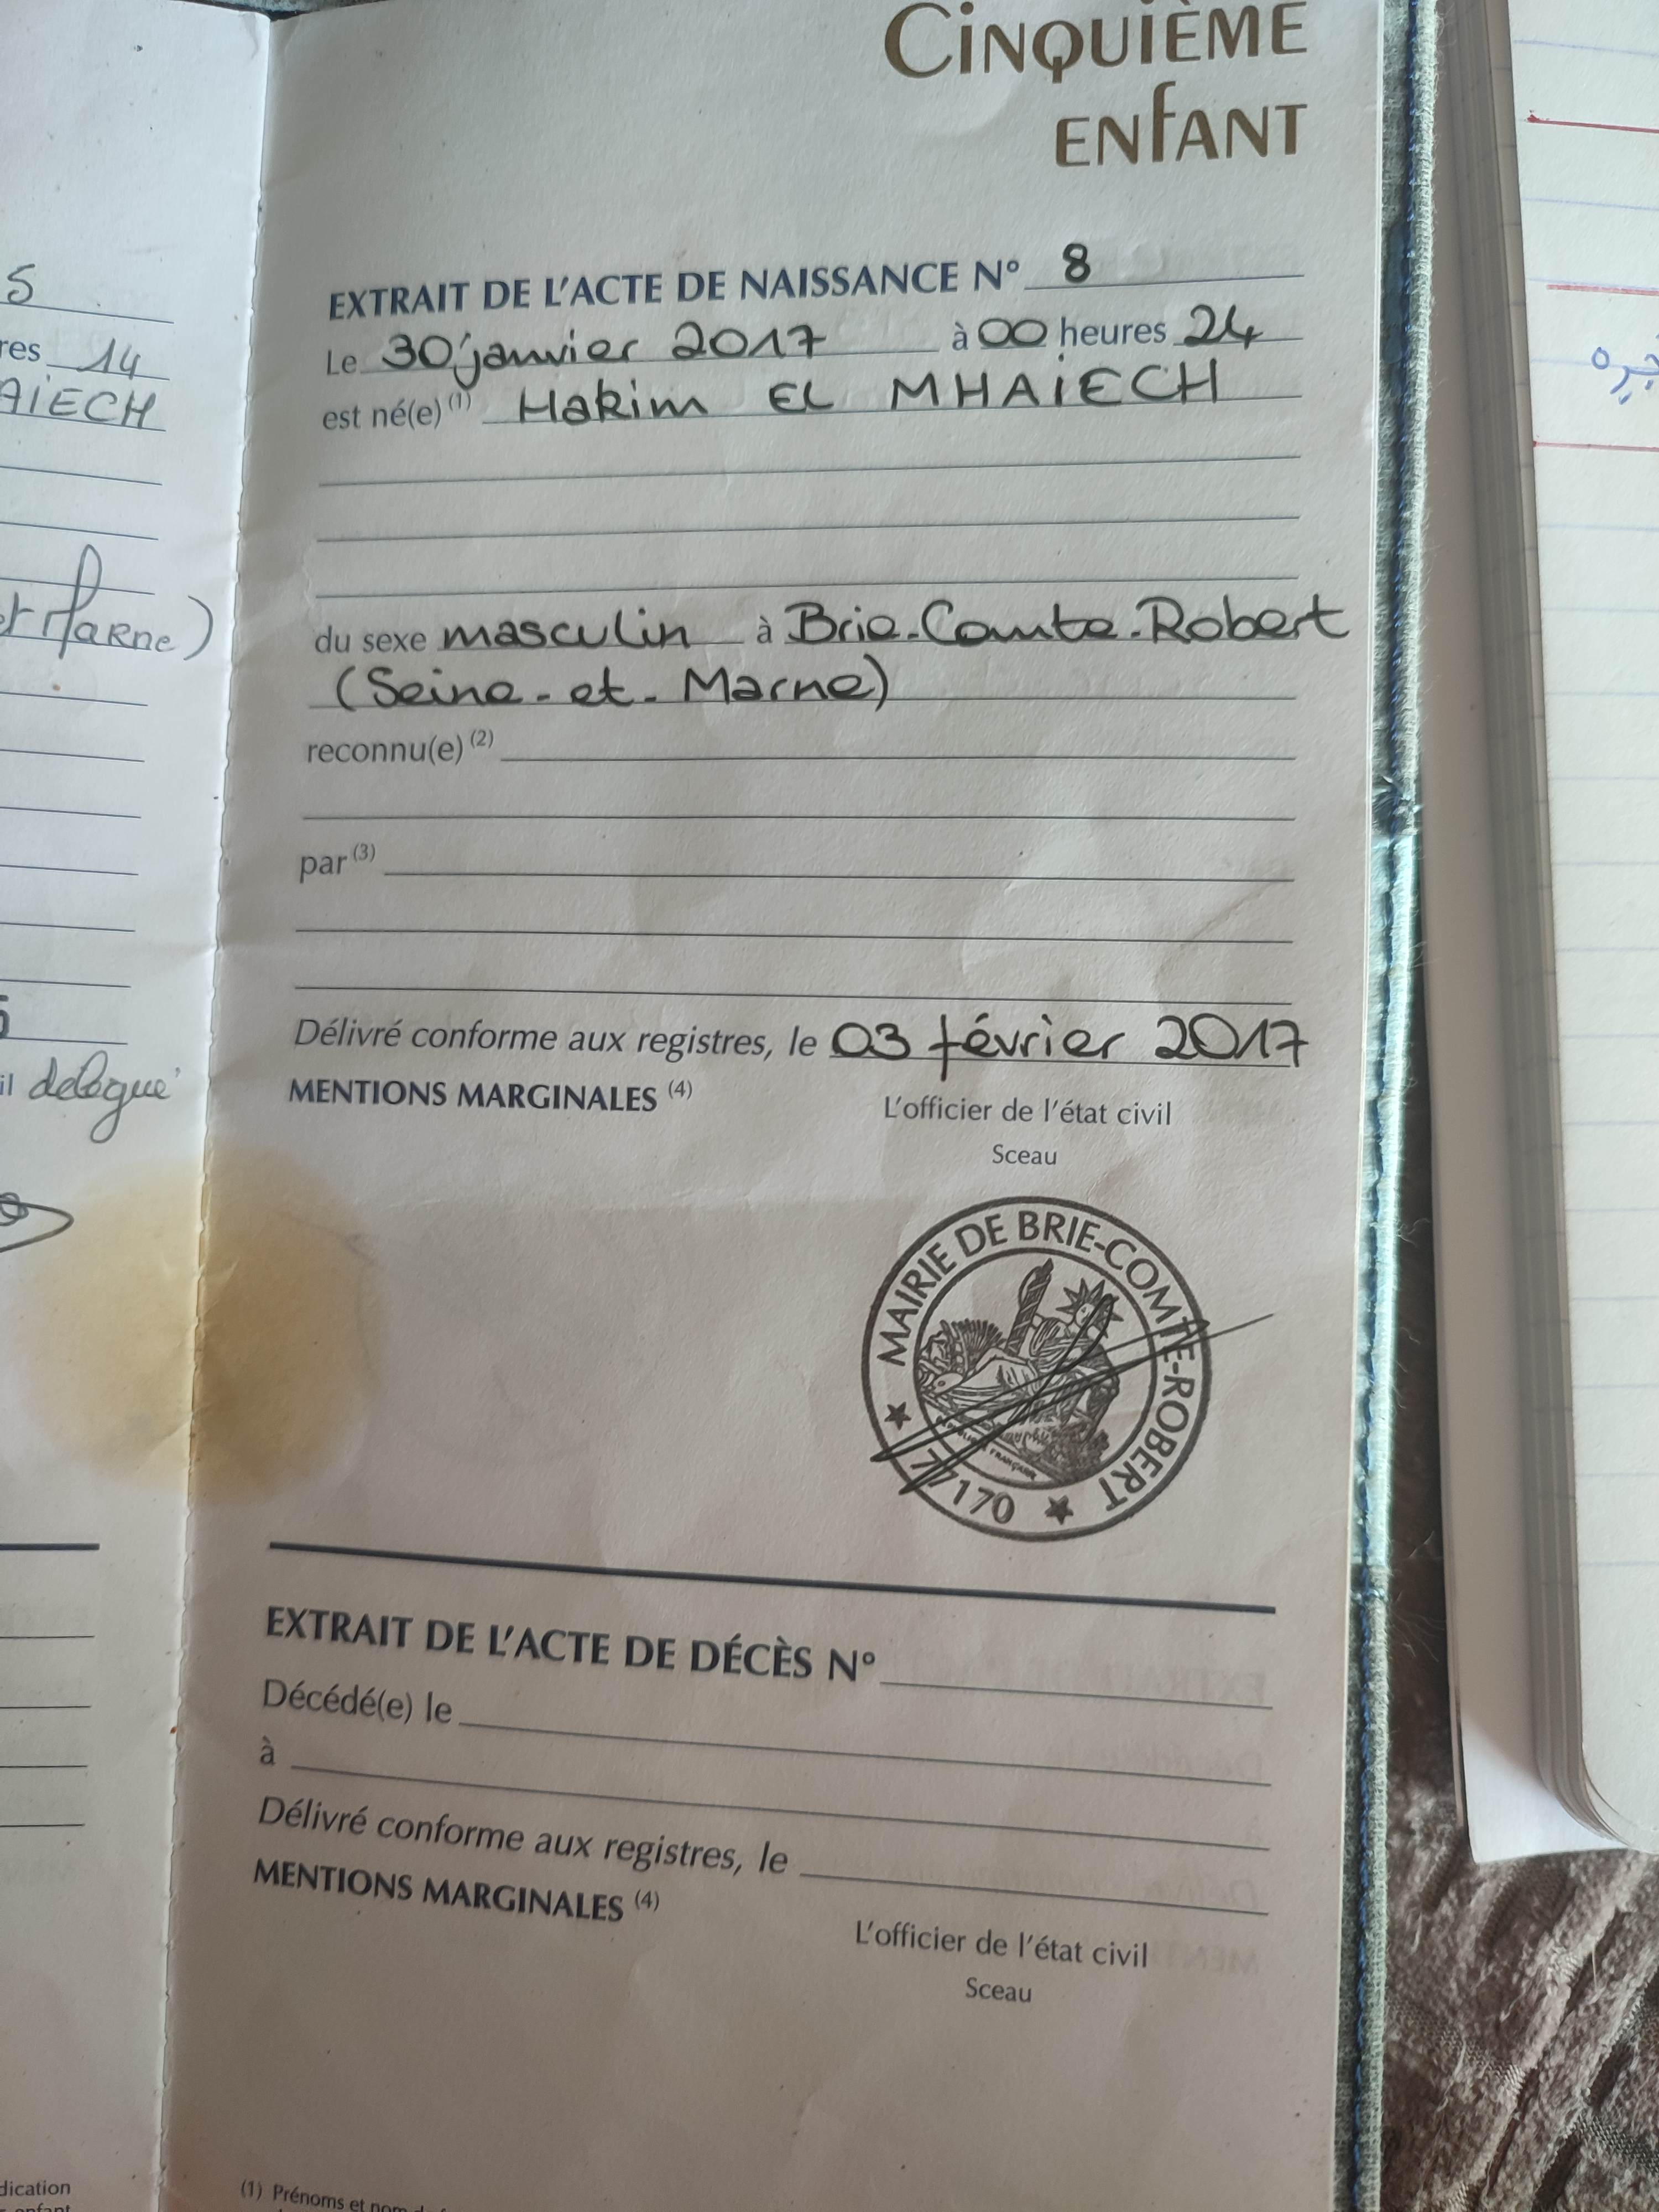 5
res 14
AIECH
et Marne)
il délégué
dication
enfant
CINQUIÈME
ENFANT
EXTRAIT DE L'ACTE DE NAISSANCE N° 8
Le 30 janvier 2017 à 00 heures 24
est né(e) (1) Hakim EL MHAIECH
du sexe masculin à Brie-Comte-Robert
(Seine-et-Marne)
reconnu(e) (2)
par (3)
Délivré conforme aux registres, le 03 février 2017
MENTIONS MARGINALES (4)
L'officier de l'état civil
Sceau
MAIRIE DE BRIE-COMTE-ROBERT
RÉPUBLIQUE FRANÇAISE
★ 77170 ★
EXTRAIT DE L'ACTE DE DÉCÈS N°
Décédé(e) le
à
Délivré conforme aux registres, le
MENTIONS MARGINALES (4)
L'officier de l'état civil
Sceau
(1) Prénoms et nom